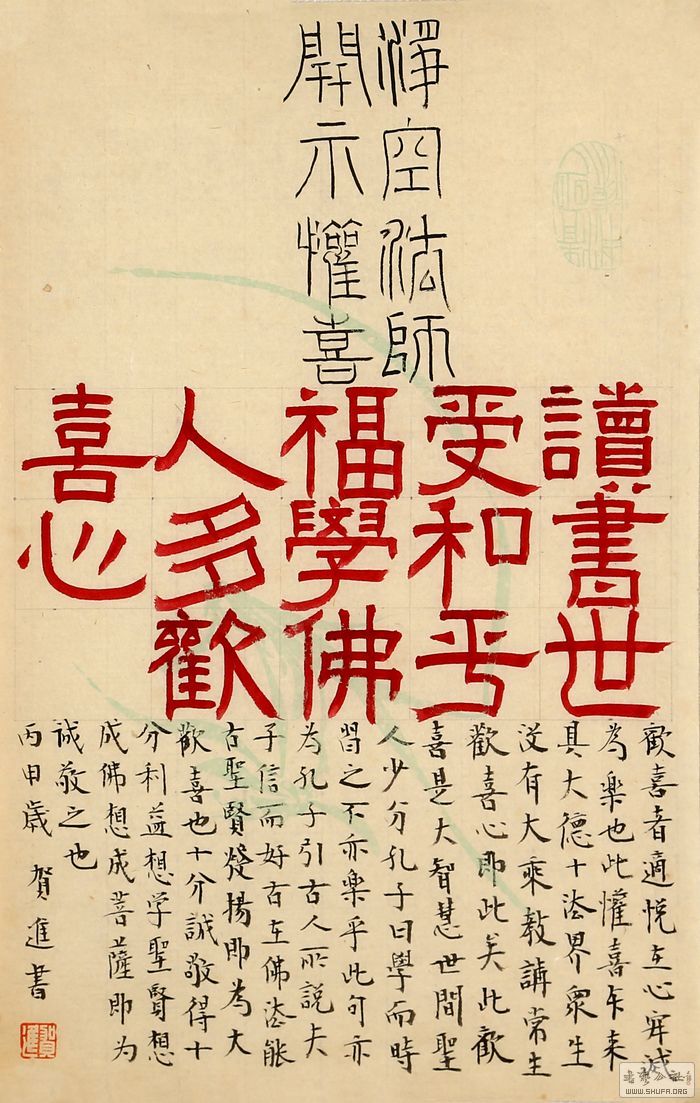 淨空法師
開示懽喜
讀書世
受和平
福學佛
人多歡
喜心
歡喜者適悅在心寂滅
為樂也此懽喜乍来
具大德十法界眾生
没有大乘教講常生
歡喜心即此矣此歡
喜是大智慧世間聖
人少分孔子曰學而時
習之不亦樂乎此句亦
為孔子引古人所說夫
子信而好古在佛法能
古聖賢發揚即為大
歡喜也十分誠敬得十
分利益想学聖賢想
成佛想成菩薩即为
誠敬之也
丙申歲 賀進書
WWW.SHUFA.ORG